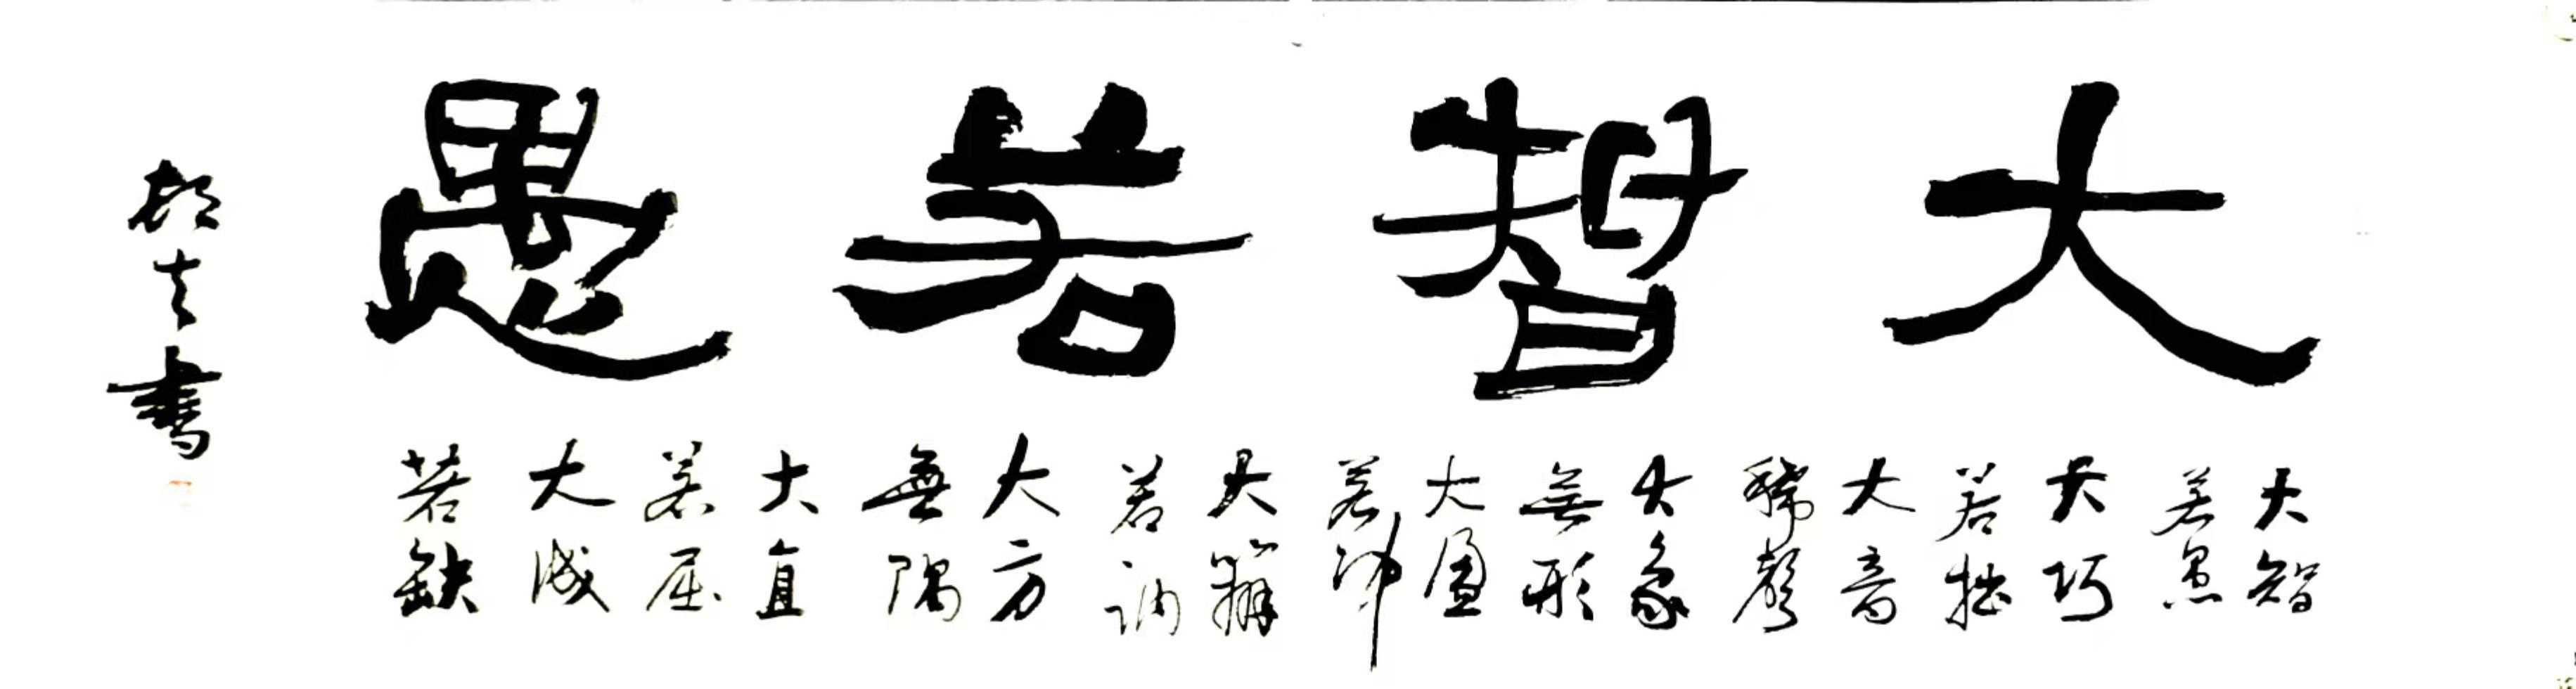 大智若愚
大智
若愚
大巧
若拙
大音
稀聲
大象
無形
大盈
若沖
大辯
若訥
大方
無隅
大直
若屈
大成
若缺
書